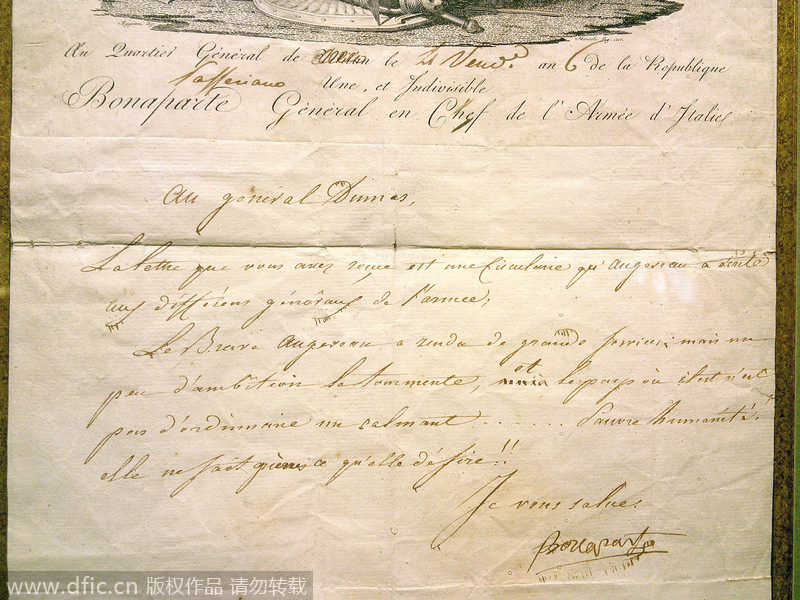 Au Quartier Général de Milan le 21 Vend.re an 6 de la République
Passeriano Une, et Indivisible
Bonaparte Général en Chef de l'Armée d'Italie
Au général Dumas,
La lettre que vous avez reçue est une Circulaire qu'augereau a écrite
aux différens généraux de l'armée;
Le Brave augereau a rendu de grands services; mais un
peu d'ambition le tourmente, et le pays où il est n'est
pas d'ordinaire un calmant . . . . . . Pauvre humanité!
elle ne sait guères ce qu'elle désire!!
Je vous salue.
Bonaparte
www.dfic.cn 版权作品 请勿转载